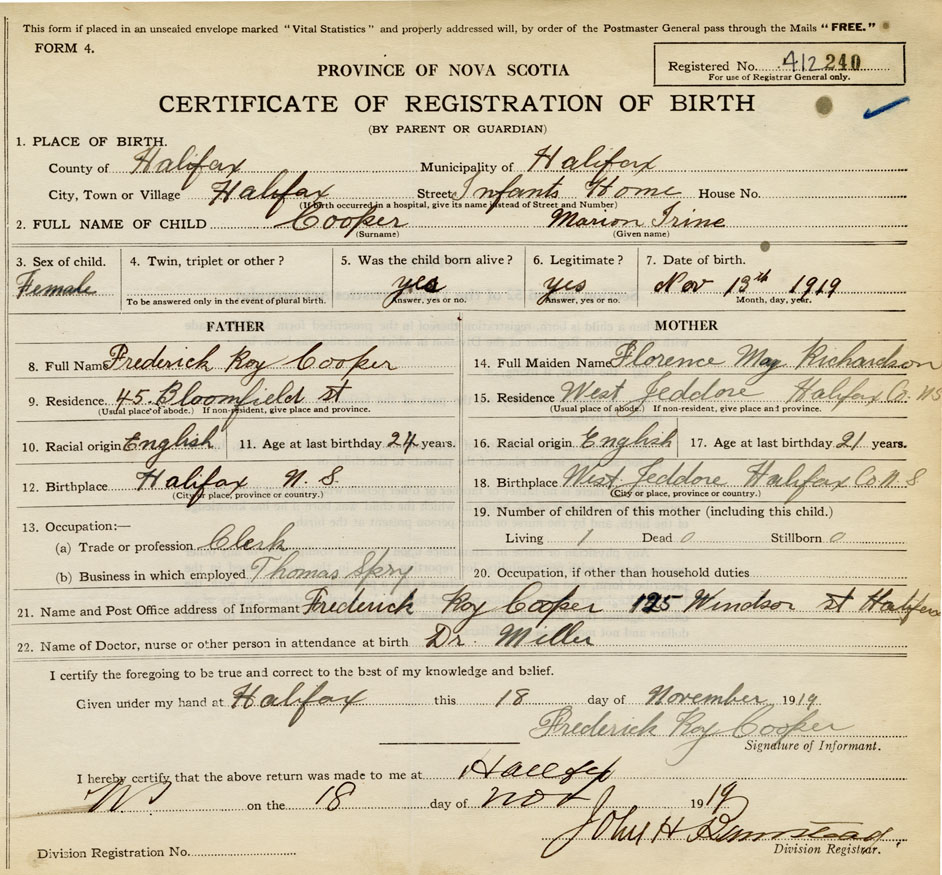 This form if placed in an unsealed envelope marked "Vital Statistics" and properly addressed will, by order of the Postmaster General pass through the Mails "FREE."
FORM 4.
Registered No. 412 240
For use of Registrar General only.
PROVINCE OF NOVA SCOTIA
CERTIFICATE OF REGISTRATION OF BIRTH
(BY PARENT OR GUARDIAN)
1. PLACE OF BIRTH.
County of Halifax Municipality of Halifax
City, Town or Village Halifax Street Infants Home House No.
(If birth occurred in a hospital, give its name instead of Street and Number)
2. FULL NAME OF CHILD Cooper Marion Irine
(Surname) (Given name)
3. Sex of child. 4. Twin, triplet or other? 5. Was the child born alive? 6. Legitimate? 7. Date of birth.
Female yes yes Nov 13th 1919
To be answered only in the event of plural birth. Answer, yes or no. Answer, yes or no. Month, day, year.
FATHER MOTHER
8. Full Name Frederick Roy Cooper 14. Full Maiden Name Florence May Richardson
9. Residence 45 Bloomfield st 15. Residence West Jeddore Halifax Co. NS
(Usual place of abode.) If non-resident, give place and province. (Usual place of abode.) If non-resident, give place and province.
10. Racial origin English 11. Age at last birthday 24 years. 16. Racial origin English 17. Age at last birthday 21 years.
12. Birthplace Halifax N. S. 18. Birthplace West Jeddore Halifax Co N S
(City or place, province or country.) (City or place, province or country.)
13. Occupation:— 19. Number of children of this mother (including this child.)
(a) Trade or profession Clerk Living 1 Dead 0 Stillborn 0
(b) Business in which employed Thomas Spry 20. Occupation, if other than household duties
21. Name and Post Office address of Informant Frederick Roy Cooper 125 Windsor st Halifax
22. Name of Doctor, nurse or other person in attendance at birth Dr. Miller
I certify the foregoing to be true and correct to the best of my knowledge and belief.
Given under my hand at Halifax this 18 day of November 1919
Frederick Roy Cooper
Signature of Informant.
I hereby certify that the above return was made to me at Halifax
NS on the 18 day of Nov 1919
John H
Division Registrar.
Division Registration No.